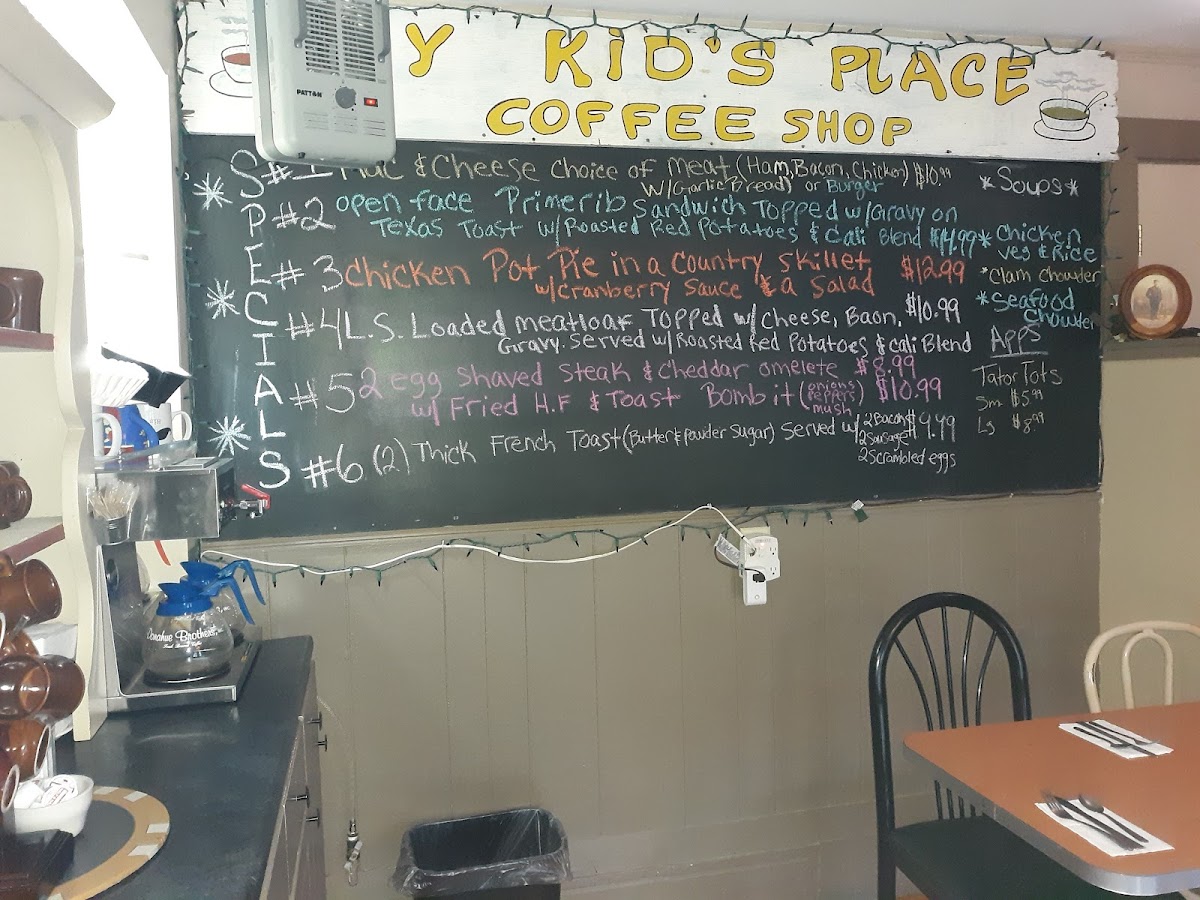 Y KiD'S PLACE
COFFEE SHOP
PATTON
SPECIALS
#1 Mac & Cheese Choice of meat (Ham, Bacon, Chicken) $10.99
w/Garlic Bread) or Burger
#2 open face Primerib Sandwich Topped w/Gravy on
Texas Toast w/Roasted Red Potatoes & Cali Blend $14.99
#3 Chicken Pot Pie in a Country Skillet $12.99
w/cranberry sauce & a Salad
#4 L.S. Loaded meatloaf Topped w/ Cheese, Baon, $10.99
Gravy. Served w/Roasted Red Potatoes & Cali Blend
#5 2 egg Shaved Steak & Cheddar omelete $8.99
w/ Fried H.F & Toast Bomb it (onions peppers mush) $10.99
#6 (2) Thick French Toast (Butter & Powder Sugar) Served w/ 2 Bacon
2 Sausage
2 Scrambled eggs
*Soups*
* Chicken
veg & Rice
*Clam Chowder
*Seafood
Chowder
Apps
Tator Tots
Sm $5.99
Lg $8.99
Donahue Brothers